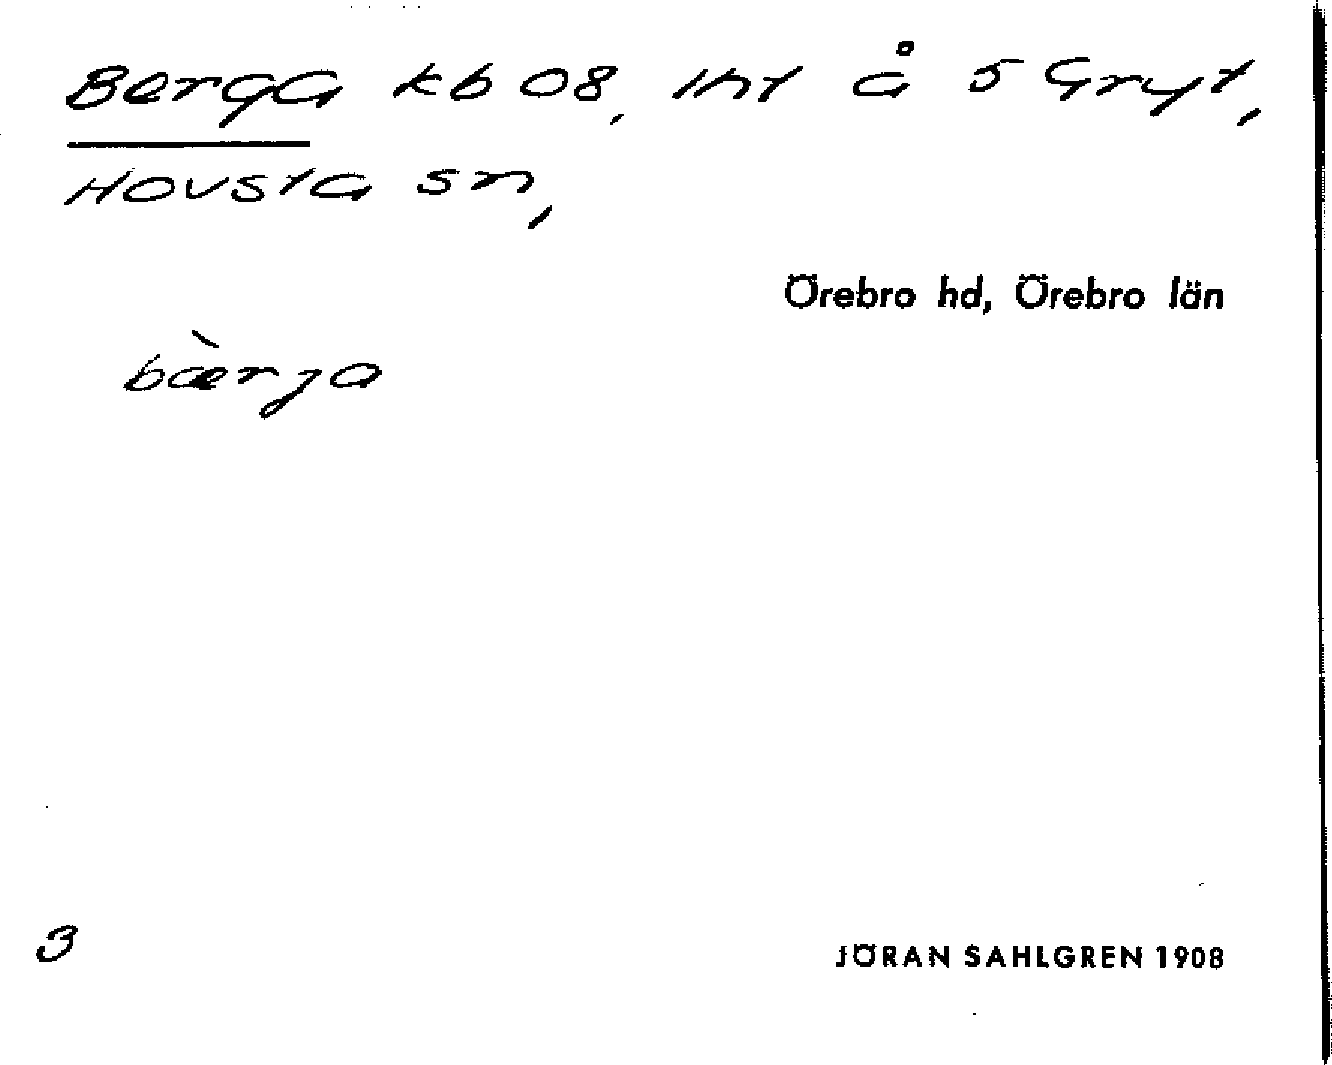 Berga kb 08, int å 5 Gryt,
Hovsta sn,
Örebro hd, Örebro län
bæ̀rja
3
JÖRAN SAHLGREN 1908